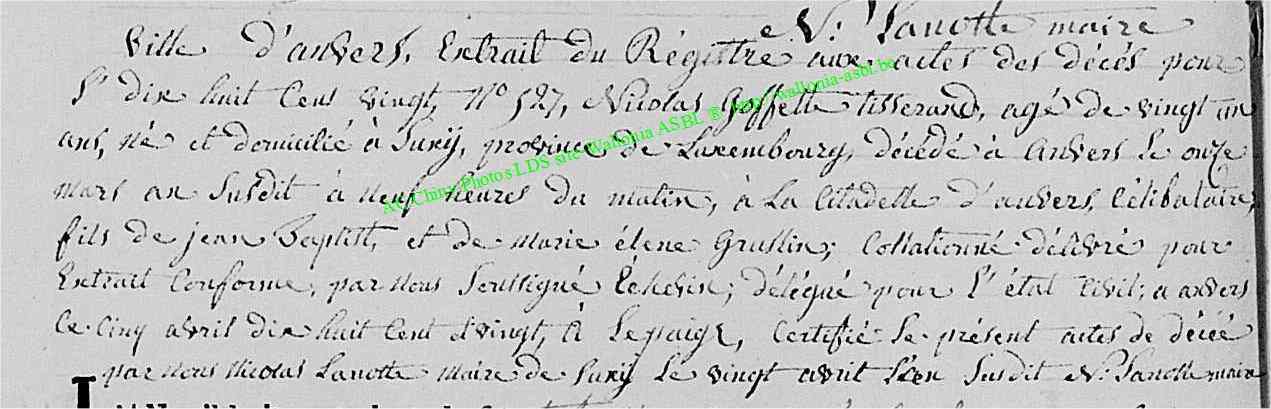 N: Lanotte maire
Ville d'anvers, Extrait du Régistre aux actes des décés pour
l' dix huit Cent vingt, N° 527, Nicolas Goffette tisserand, agé de vingt un
ans, né et domicilié à Suxÿ, province de Luxembourg, décédé à Anvers Le onze
mars an Susdit à neuf heures du matin, à La Citadelle d'anvers, Célibataire,
fils de jean Baptist, et de marie élene Gruslin; Collationné délivré pour
Extrait Conforme, par nous Soussigné Échevin; délégué pour l'état Civil; a anvers
Le Cinq avril dix huit Cent vingt, Lepaige, Certifié Le présent actes de décée
par nous Nicolas Lanotte maire de Suxÿ Le vingt avril Susdit N: Lanotte maire
AC Chiny Photos LDS site Wallonia ASBL ® http://wallonia-asbl.be